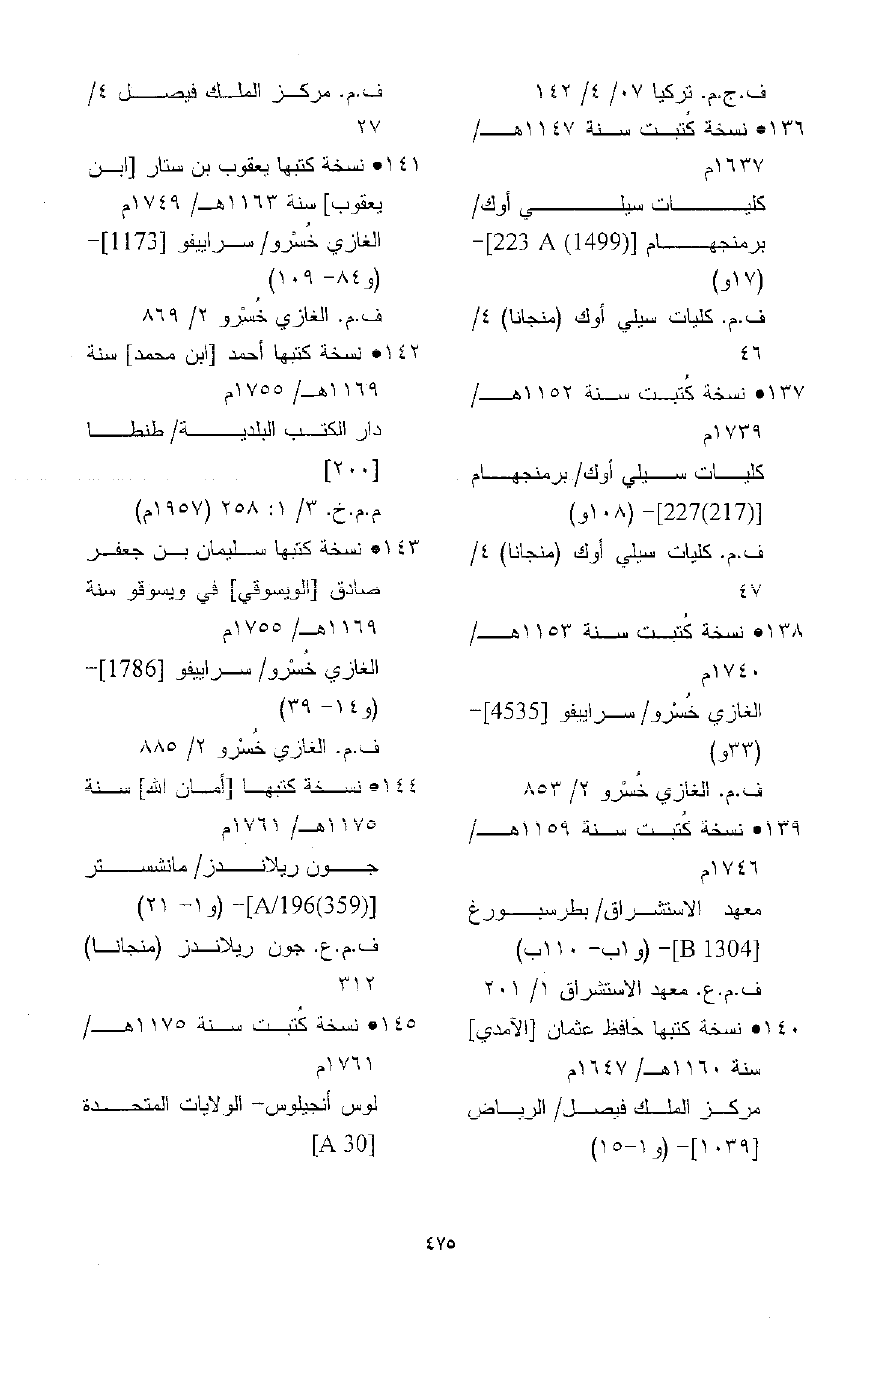 ف.ج.م. تركيا ٠٧/ ٤/ ١٤٢
١٣٦• نسخة كُتبت سنة ١١٤٧هـ/
١٦٣٧م
كليات سيلي أوك/
برمنجهام [223 A (1499)]-
(١٧و)
ف.م. كليات سيلي أوك (منجانا) ٤/
٤٦
١٣٧• نسخة كُتبت سنة ١١٥٢هـ/
١٧٣٩م
كليات سيلي أوك/ برمنجهام
[227(217)]- (١٠٨و)
ف.م. كليات سيلي أوك (منجانا) ٤/
٤٧
١٣٨• نسخة كُتبت سنة ١١٥٣هـ/
١٧٤٠م
الغازي خُسْرو/ سراييفو [4535]-
(٣٣و)
ف.م. الغازي خُسْرو ٢/ ٨٥٣
١٣٩• نسخة كُتبت سنة ١١٥٩هـ/
١٧٤٦م
معهد الاستشراق/ بطرسبورغ
[B 1304]- (و١ب- ١١٠ب)
ف.م.ع. معهد الاستشراق ١/ ٢٠١
١٤٠• نسخة كتبها حافظ عثمان [الآمدي]
سنة ١١٦٠هـ/ ١٦٤٧م
مركز الملك فيصل/ الرياض
[١٠٣٩]- (و١-١٥)
ف.م. مركز الملك فيصل ٤/
٢٧
١٤١• نسخة كتبها يعقوب بن ستار [ابن
يعقوب] سنة ١١٦٣هـ/ ١٧٤٩م
الغازي خُسْرو/ سراييفو [1173]-
(و٨٤- ١٠٩)
ف.م. الغازي خُسْرو ٢/ ٨٦٩
١٤٢• نسخة كتبها أحمد [ابن محمد] سنة
١١٦٩هـ/ ١٧٥٥م
دار الكتب البلدية/ طنطا
[٢٠٠]
م.م.خ. ٣/ ١: ٢٥٨ (١٩٥٧م)
١٤٣• نسخة كتبها سليمان بن جعفر
صادق [الويسوقي] في ويسوقو سنة
١١٦٩هـ/ ١٧٥٥م
الغازي خُسْرو/ سراييفو [1786]-
(و١٤- ٣٩)
ف.م. الغازي خُسْرو ٢/ ٨٨٥
١٤٤• نسخة كتبها [أمان الله] سنة
١١٧٥هـ/ ١٧٦١م
جون ريلاندز/ مانشستر
[A/196(359)]- (و١- ٢١)
ف.م.ع. جون ريلاندز (منجانا)
٣١٢
١٤٥• نسخة كُتبت سنة ١١٧٥هـ/
١٧٦١م
لوس أنجيلوس- الولايات المتحدة
[A 30]
٤٧٥